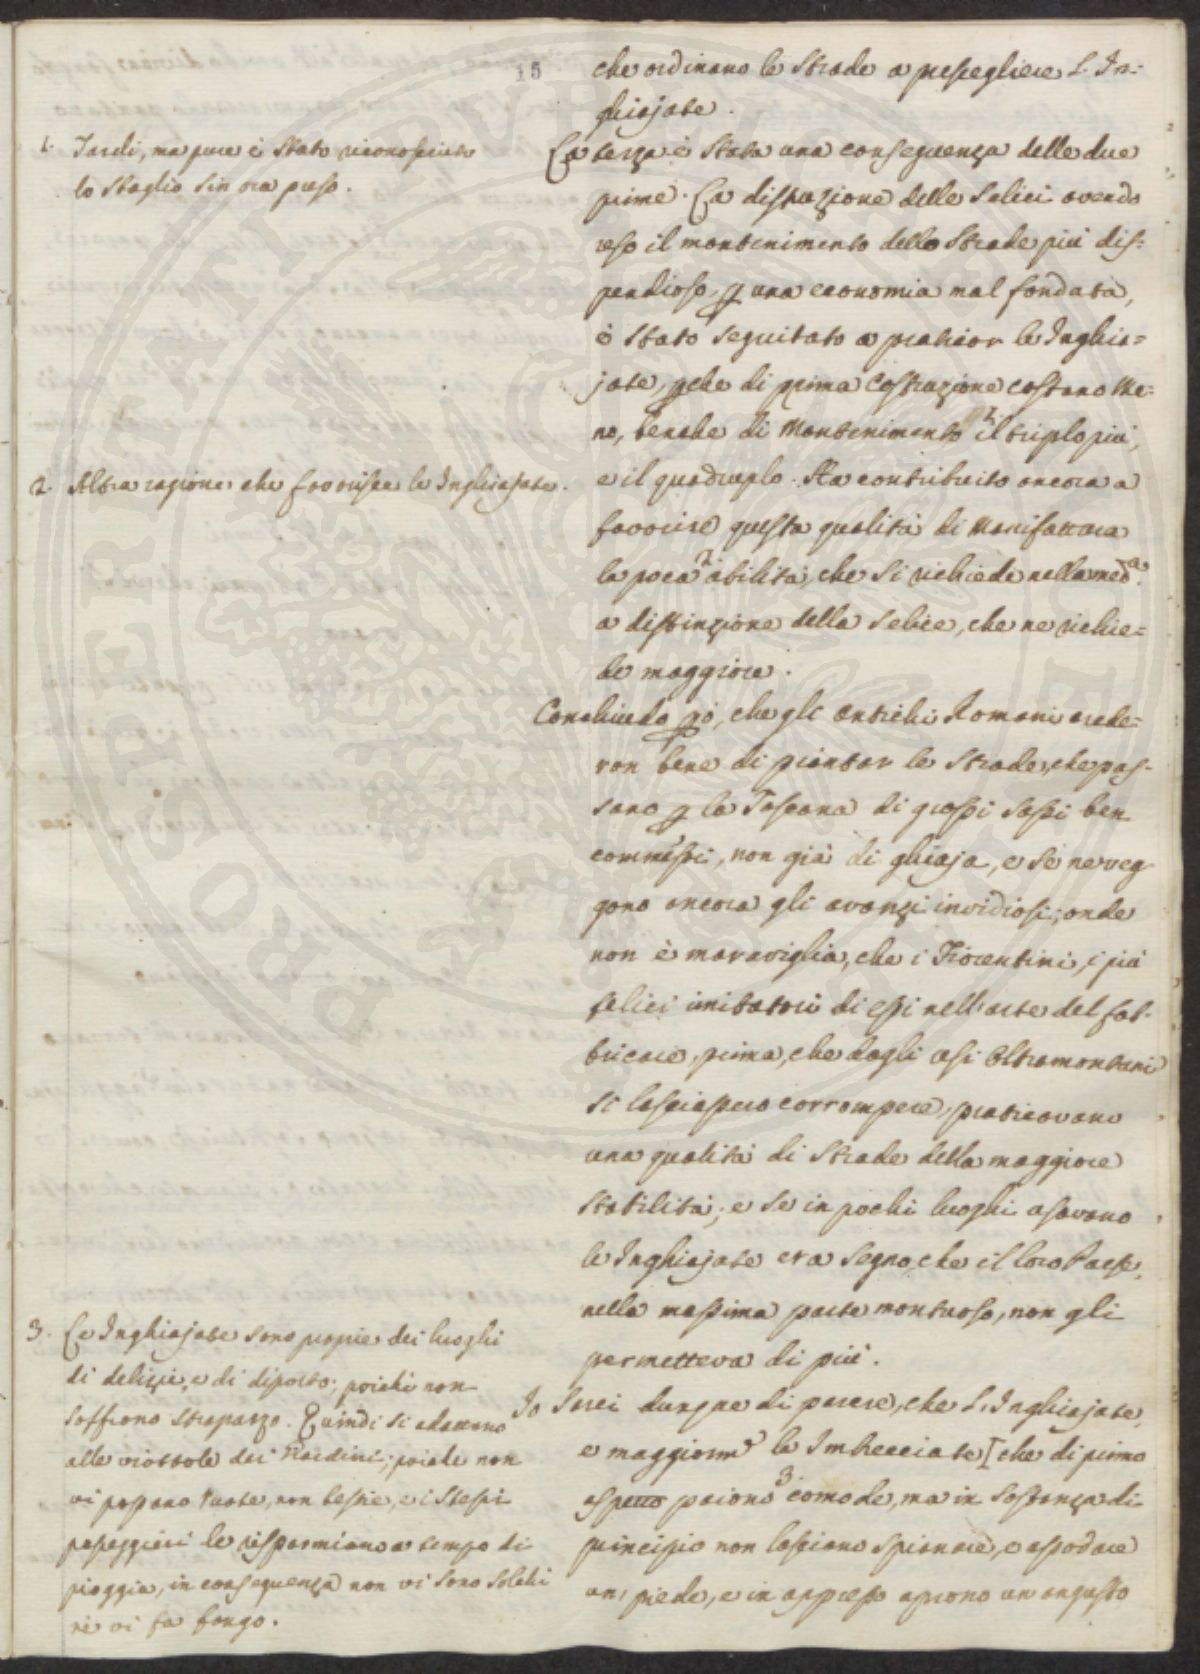 15
che ordinano le Strade a presegliere l'In=
ghiajate.
La terza è Stata una conseguenza delle due
prime. La distruzione delle Selici avendo
reso il mantenimento delle Strade più dis=
pendioso, p una economia mal fondata,
è Stato seguitato a praticar le Inghia=
jate, pche di prima Costruzione costano Me=
no, benche di Mantenimento 1. il triplo più,
e il quadruplo. Ha contribuito ancora a
favorire questa qualità di Manifattura
la poca 2. abilità, che Si richiede nella med.a
a distinzione della Selice, che ne richie=
de maggiore.
Conchiudo pò, che gli antichi Romani crede=
ron bene di piantar le Strade, che pas=
sano p la Toscana di grossi Sassi ben
commessi, non già di ghiaja, e Se ne veg
gono ancora gli avanzi invidiosi; onde
non è maraviglia, che i Fiorentini, i più
felici imitatori di essi nell'arte del fab=
bricare, prima, che dagli usi Oltramontani
Si lasciassero corrompere, praticavano
una qualità di Strade della maggiore
Stabilità; e Se in pochi luoghi usavano
le Inghiajate era Segno, che il loro Paese,
nella massima parte montuoso, non gli
permetteva di più.
Io Sarei dunque di parere, che l'Inghiajate,
e maggiorm.e le Imbrecciate [che di primo
aspetto paiono 3. comode, ma in Sostanza di
principio non lasciano Spianare, o assodare
un piede, e in appresso aprono un angusto
1. Tardi, ma pure è Stato riconosciuto
lo Sbaglio Sin ora preso.
2. Altra ragione che favorisce le Inghiajate.
3. Le Inghiajate Sono proprie dei luoghi
di delizie, e di diporto; poichè non
Soffrono Strapazzo. Quindi Si adattano
alle viottole dei Giardini; poichè non
vi passano Ruote, non bestie, e i Stessi
passeggieri le risparmiano a tempo di
pioggia, in conseguenza non vi Sono Solchi
nè vi fa fango.
PERITI PUBLICI